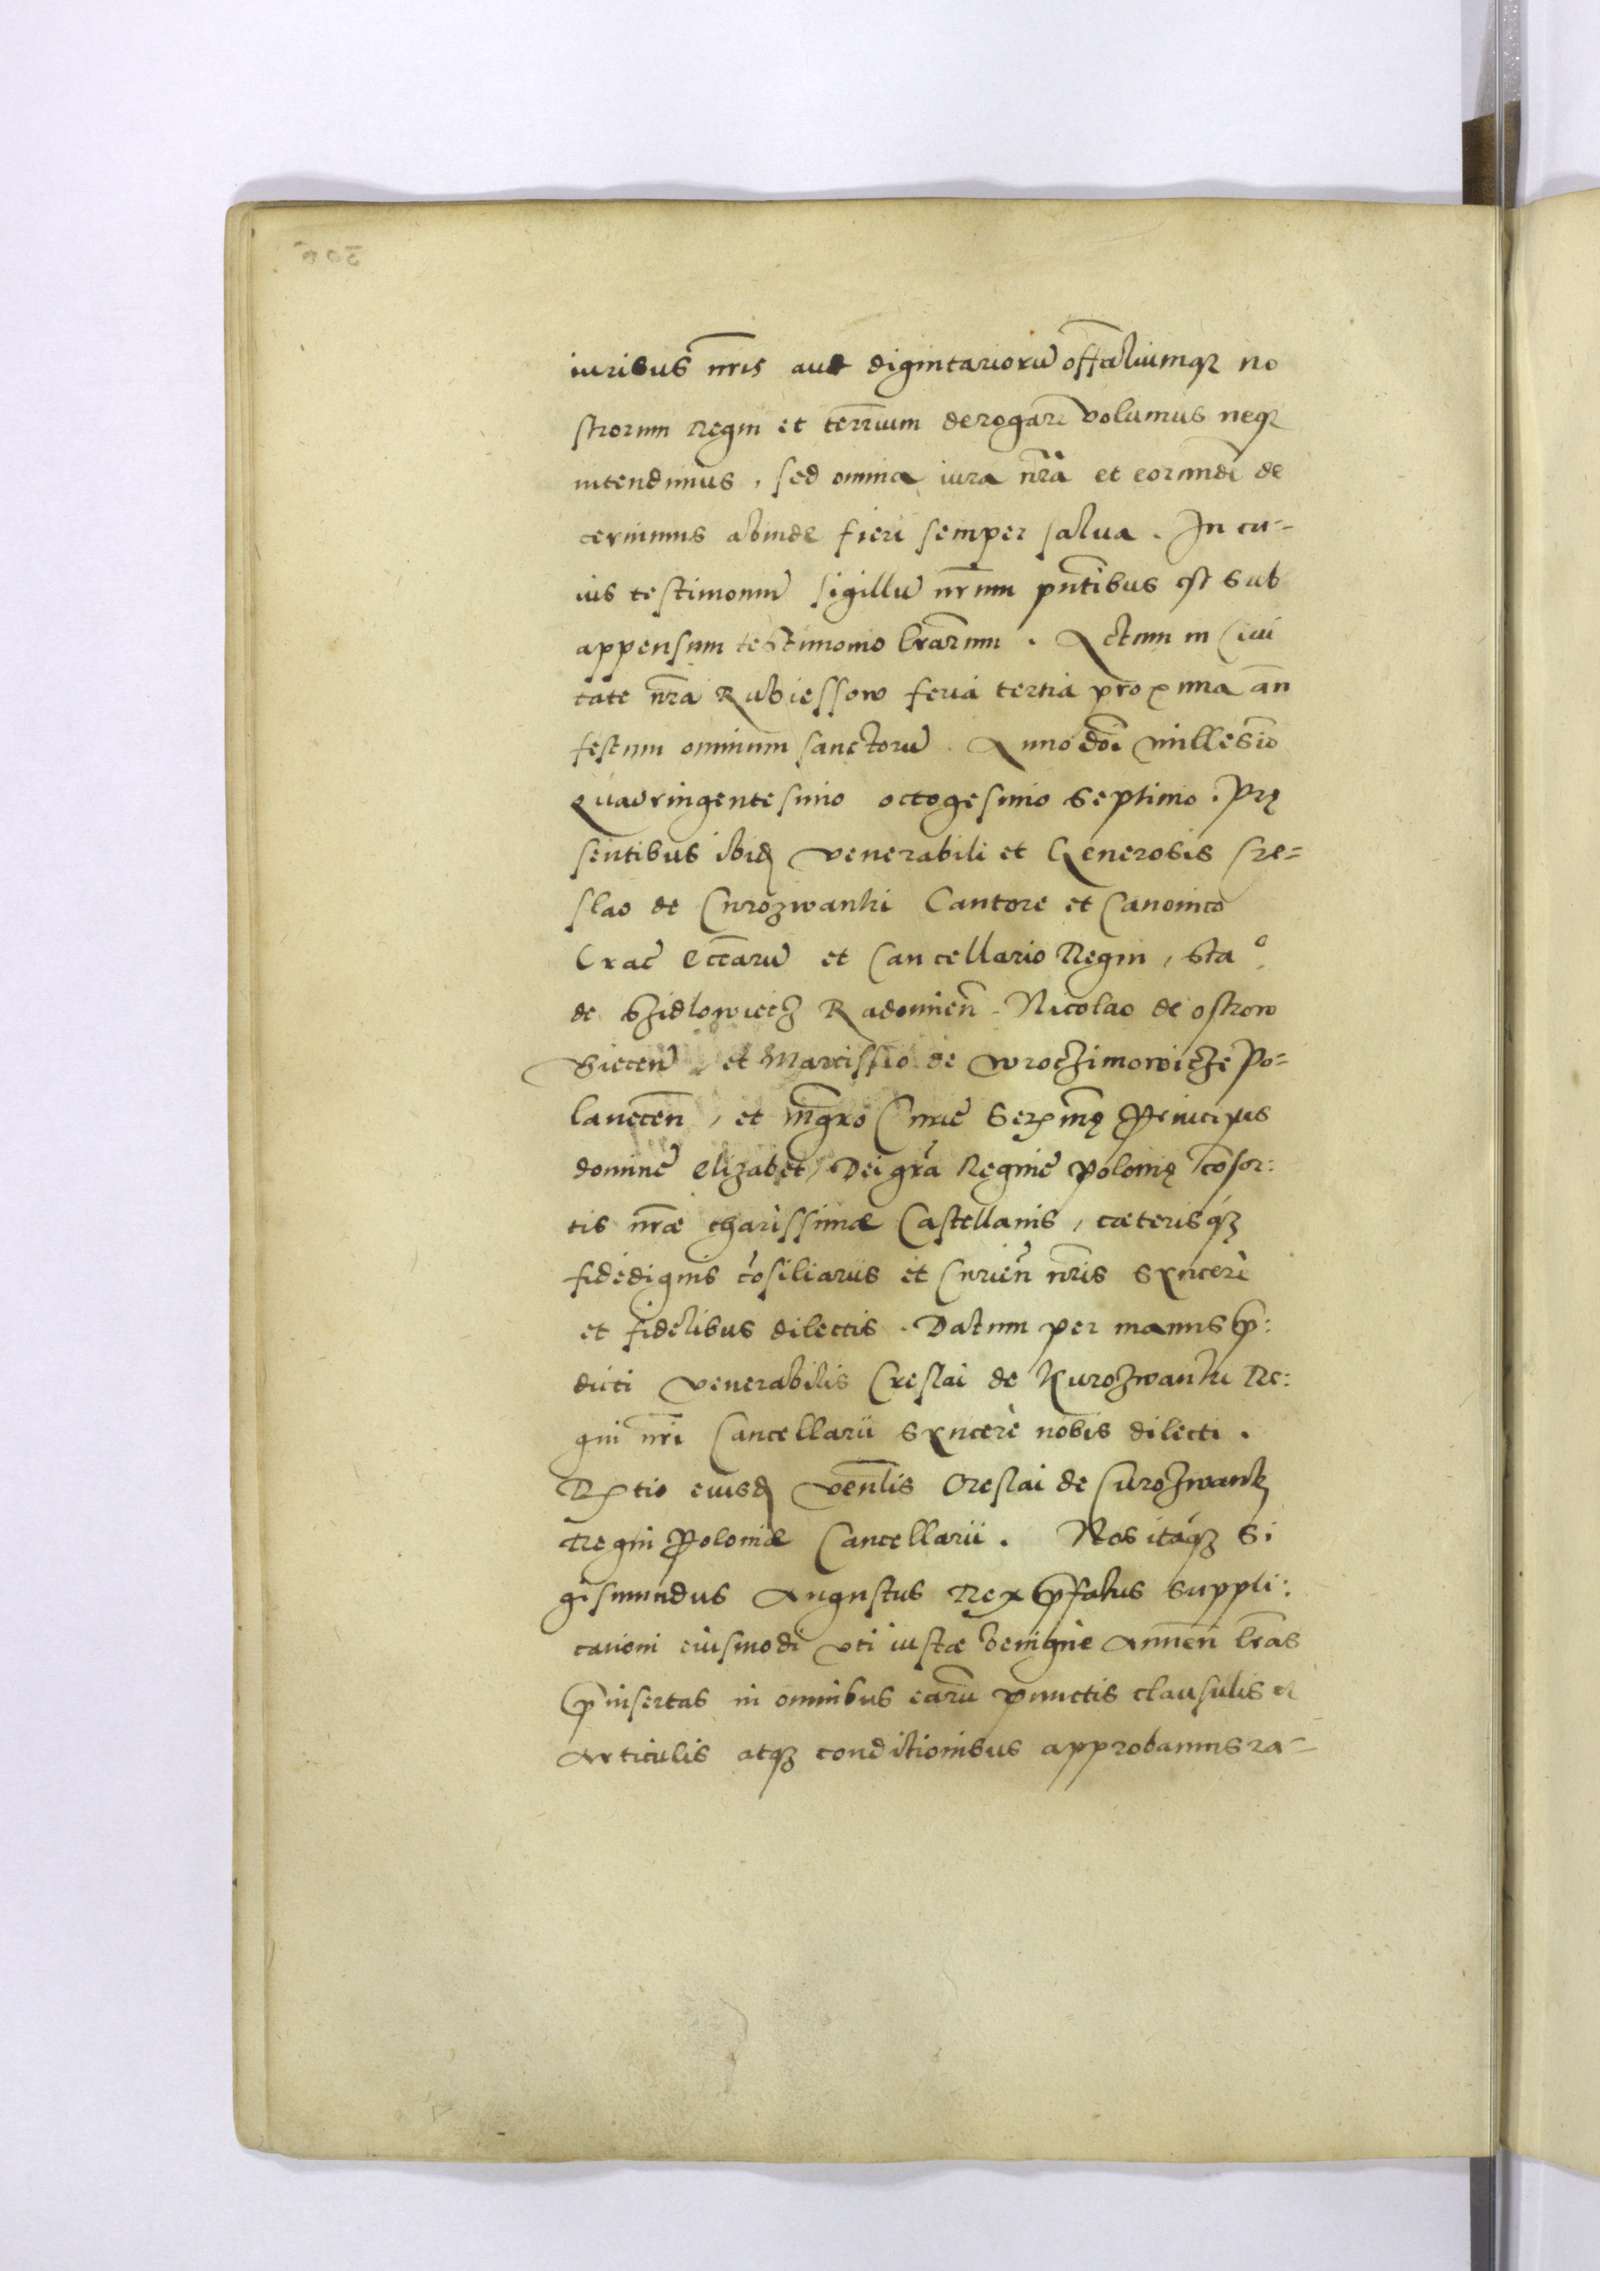 iuribus nr̄is aut dignitariorū offāliumqꝫ no
strorum Regni et terrarum derogare volumus neqꝫ
intendimus, sed omnia iura nr̄a et eorundē de
cernimus abinde fieri semper salua. In cu-
ius testimoniū sigillū nr̄um pn̄tibus est sub
appensum testimonio lr̄arum. Actum in Ciui
tate nr̄a Rubiessow feria tertia proxima an̄
festum omnium sanctorū. Anno dōi millesiō
Quadringentesimo octogesimo septimo. Prę
sentibus ibidꝫ venerabili et Generosis Cre-
slao de Curozwanki Cantore et Canonico
Crac̄ Eccl̄arū et Cancellario Regni, Staº.
de Szidlowiecz Radomien̄. Nicolao de ostrow
Viecen̄ et Narcissio de Wroczimowicze Po-
lanecen̄, et mḡro Curie Serͫͤ Principis
domine Elizabet Dei gr̄a Regine polonię cōsor:
tis nr̄ae charissimae Castellanis, caeterisqꝫ
fidedignis cōsiliariis et Curien̄ nr̄is syncere
et fidelibus dilectis. Datum per manus p̄:
dicti venerabilis Creslai de Kurozwanki Re:
gni nr̄i Cancellarii syncere nobis dilecti.
Rͣtio eiusdꝫ ven̄lis Creslai de Curozwank
Regni Poloniae Cancellarii. Nos itaqꝫ Si
gismundus Augustus Rex p̄fatus suppli:
cationi eiusmodi vti iustae benigne annuen̄ lr̄as
p̄insertas in omnibus earū punctis clausulis et
Articulis atqꝫ conditionibus approbamus ra-